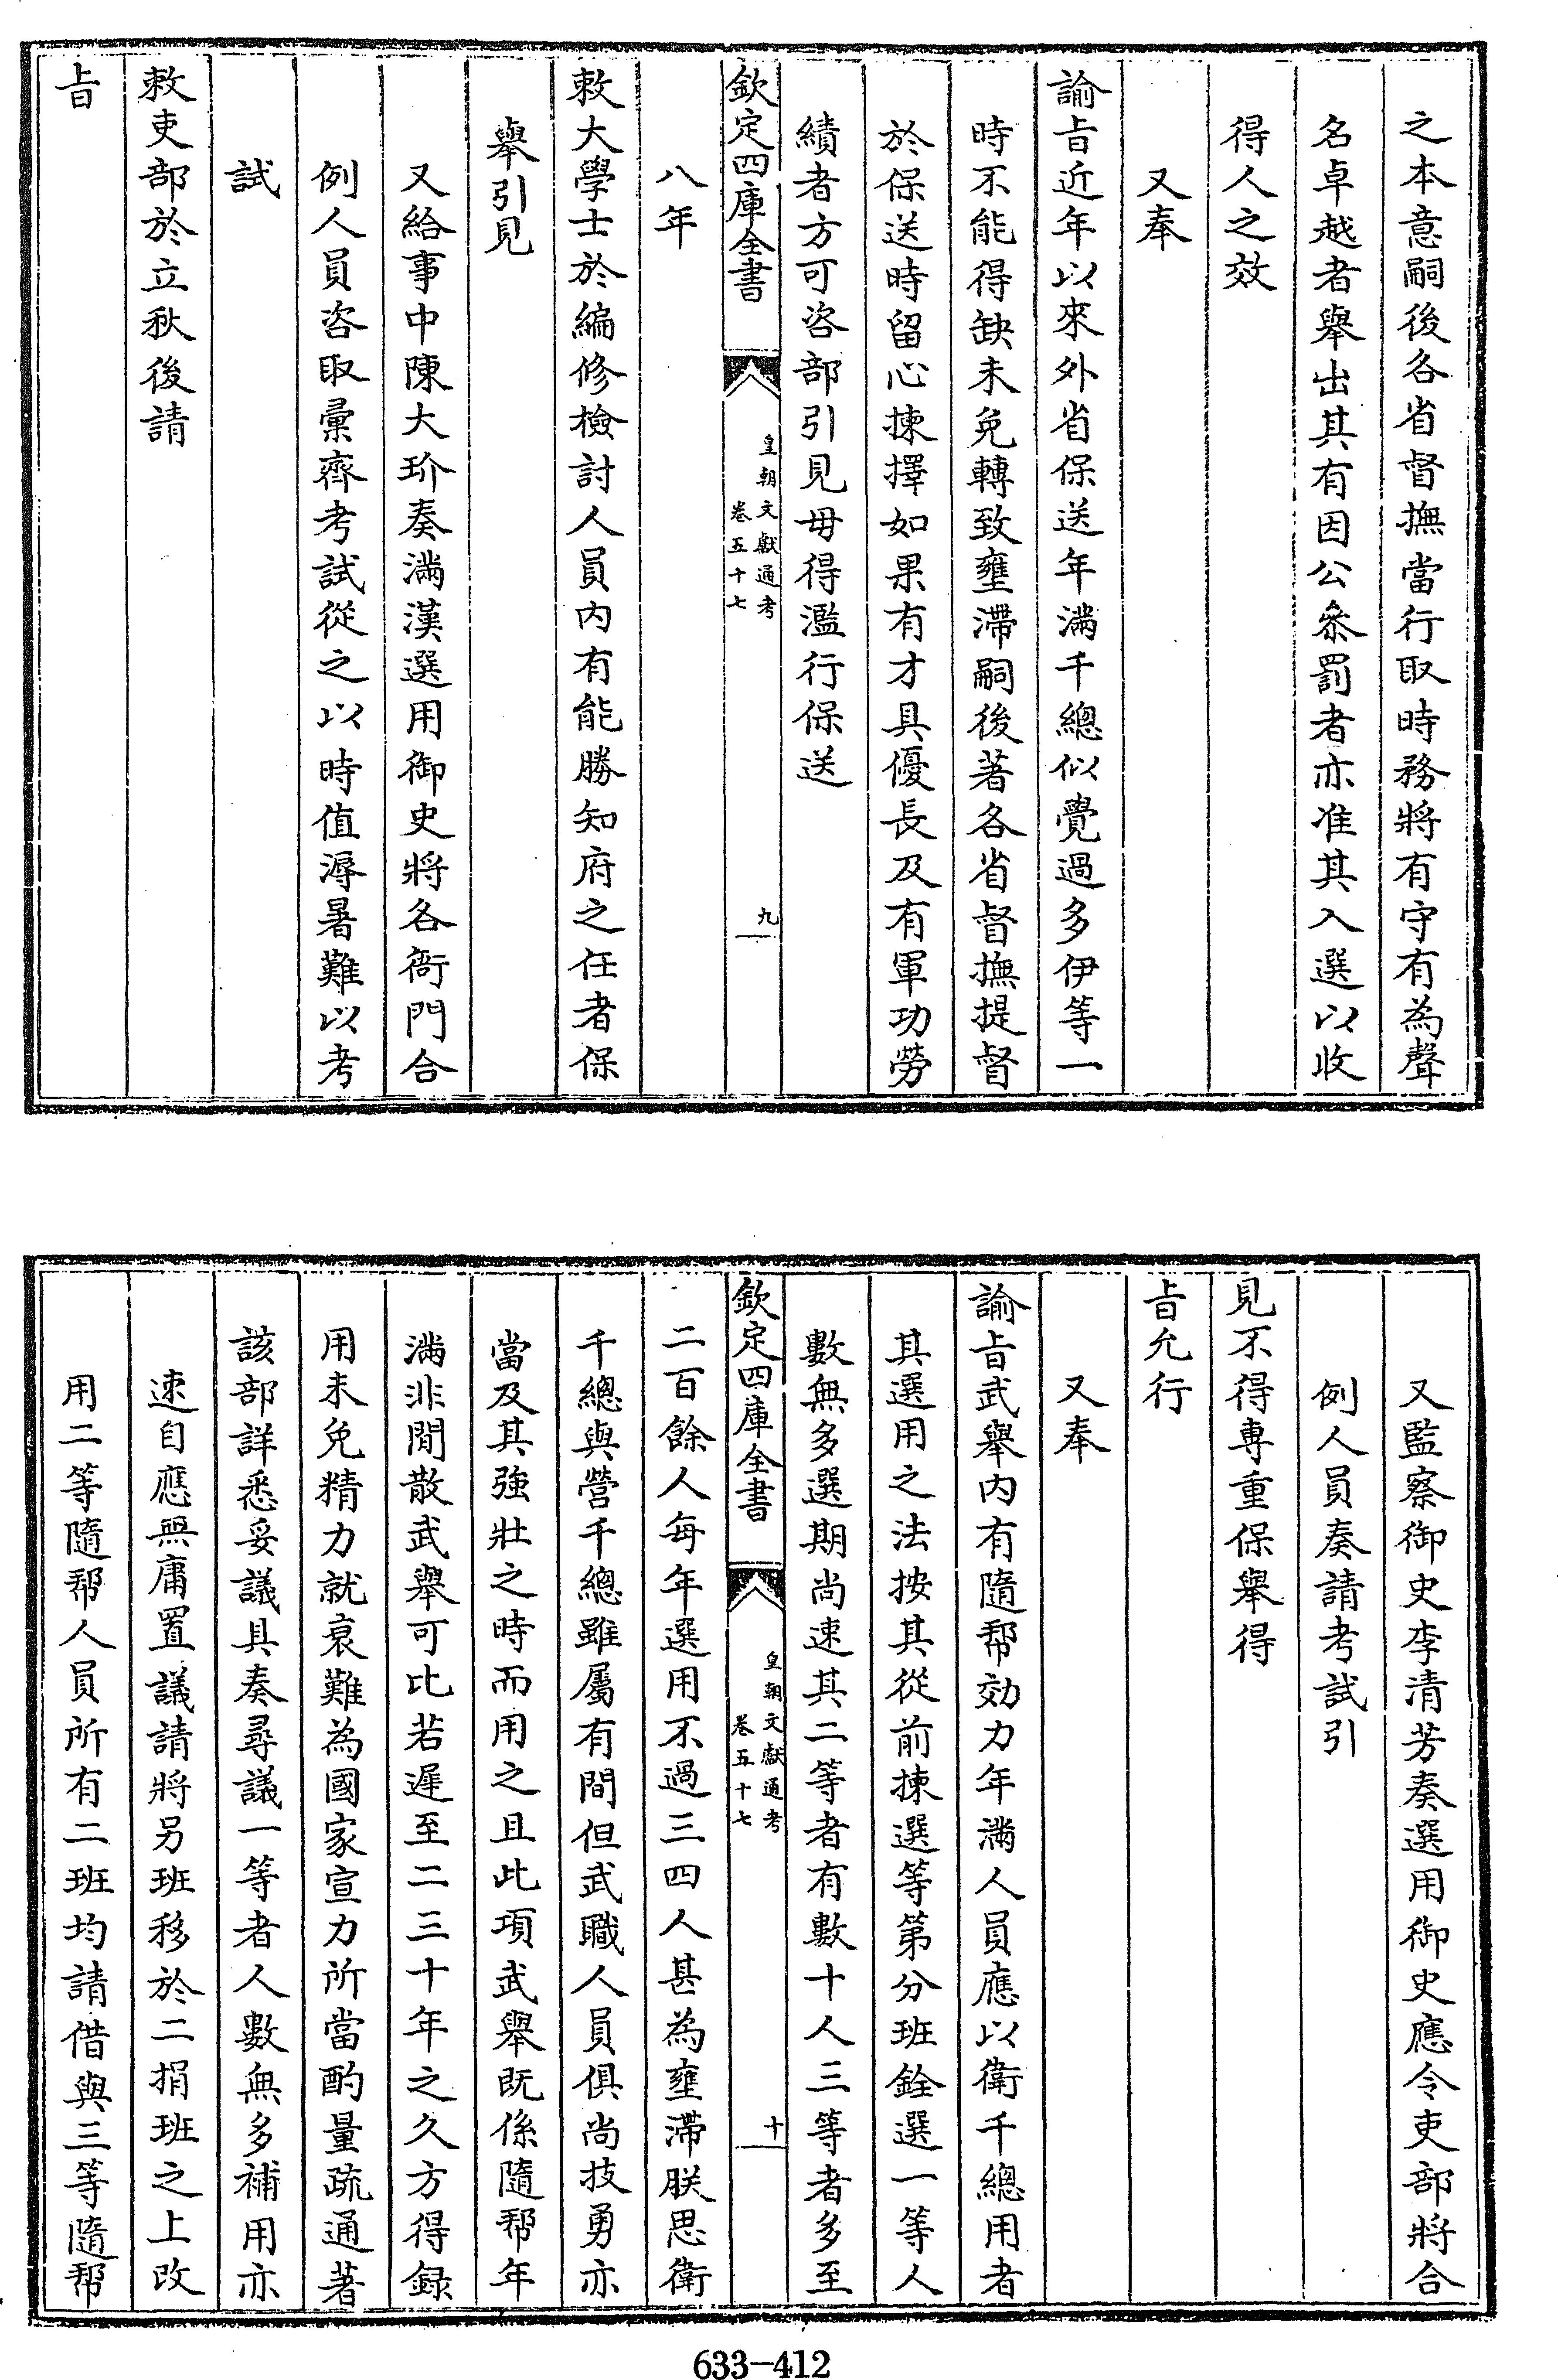 之本意嗣後各省督撫當行取時務將有守有為聲
名卓越者舉出其有因公叅罰者亦准其入選以收
得人之效
又奉
諭旨近年以來外省保送年滿千總似覺過多伊等一
時不能得缺未免轉致壅滯嗣後著各省督撫提督
於保送時留心揀擇如果有才具優長及有軍功勞
績者方可咨部引見毋得濫行保送
欽定四庫全書
皇朝文獻通考
卷五十七
九
八年
敕大學士於編修檢討人員内有能勝知府之任者保
舉引見
又給事中陳大玠奏滿漢選用御史將各衙門合
例人員咨取彙齊考試從之以時值溽暑難以考
試
敕吏部於立秋後請
旨
又監察御史李清芳奏選用御史應令吏部將合
例人員奏請考試引
見不得專重保舉得
旨允行
又奉
諭旨武舉内有隨幫効力年滿人員應以衛千總用者
其選用之法按其從前揀選等第分班銓選一等人
數無多選期尚速其二等者有數十人三等者多至
欽定四庫全書
皇朝文獻通考
卷五十七
十
二百餘人每年選用不過三四人甚為壅滯朕思衛
千總與營千總雖屬有間但武職人員俱尚技勇亦
當及其強壯之時而用之且此項武舉既係隨幫年
滿非閒散武舉可比若遲至二三十年之久方得録
用未免精力就衰難為國家宣力所當酌量疏通著
該部詳悉妥議具奏尋議一等者人數無多補用亦
速自應無庸置議請將另班移於二捐班之上改
用二等隨幫人員所有二班均請借與三等隨幫
633-412